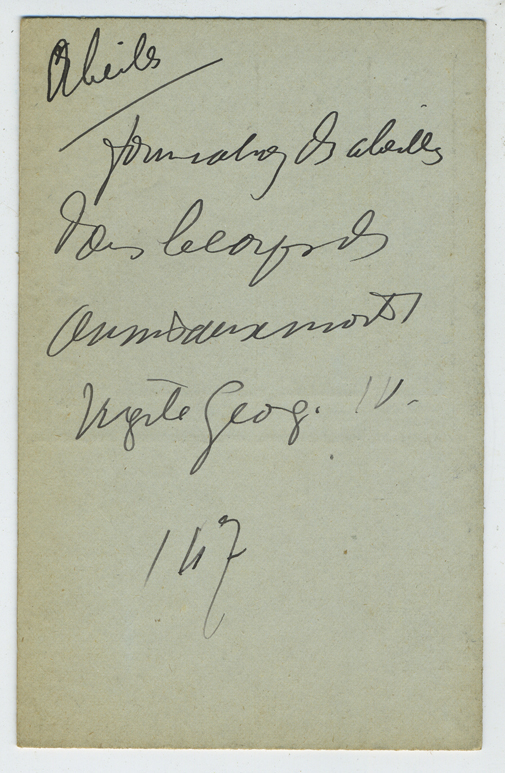 Abeilles
formation des abeilles
dans le corps des
animaux morts
Virgile Georg. IV.
147